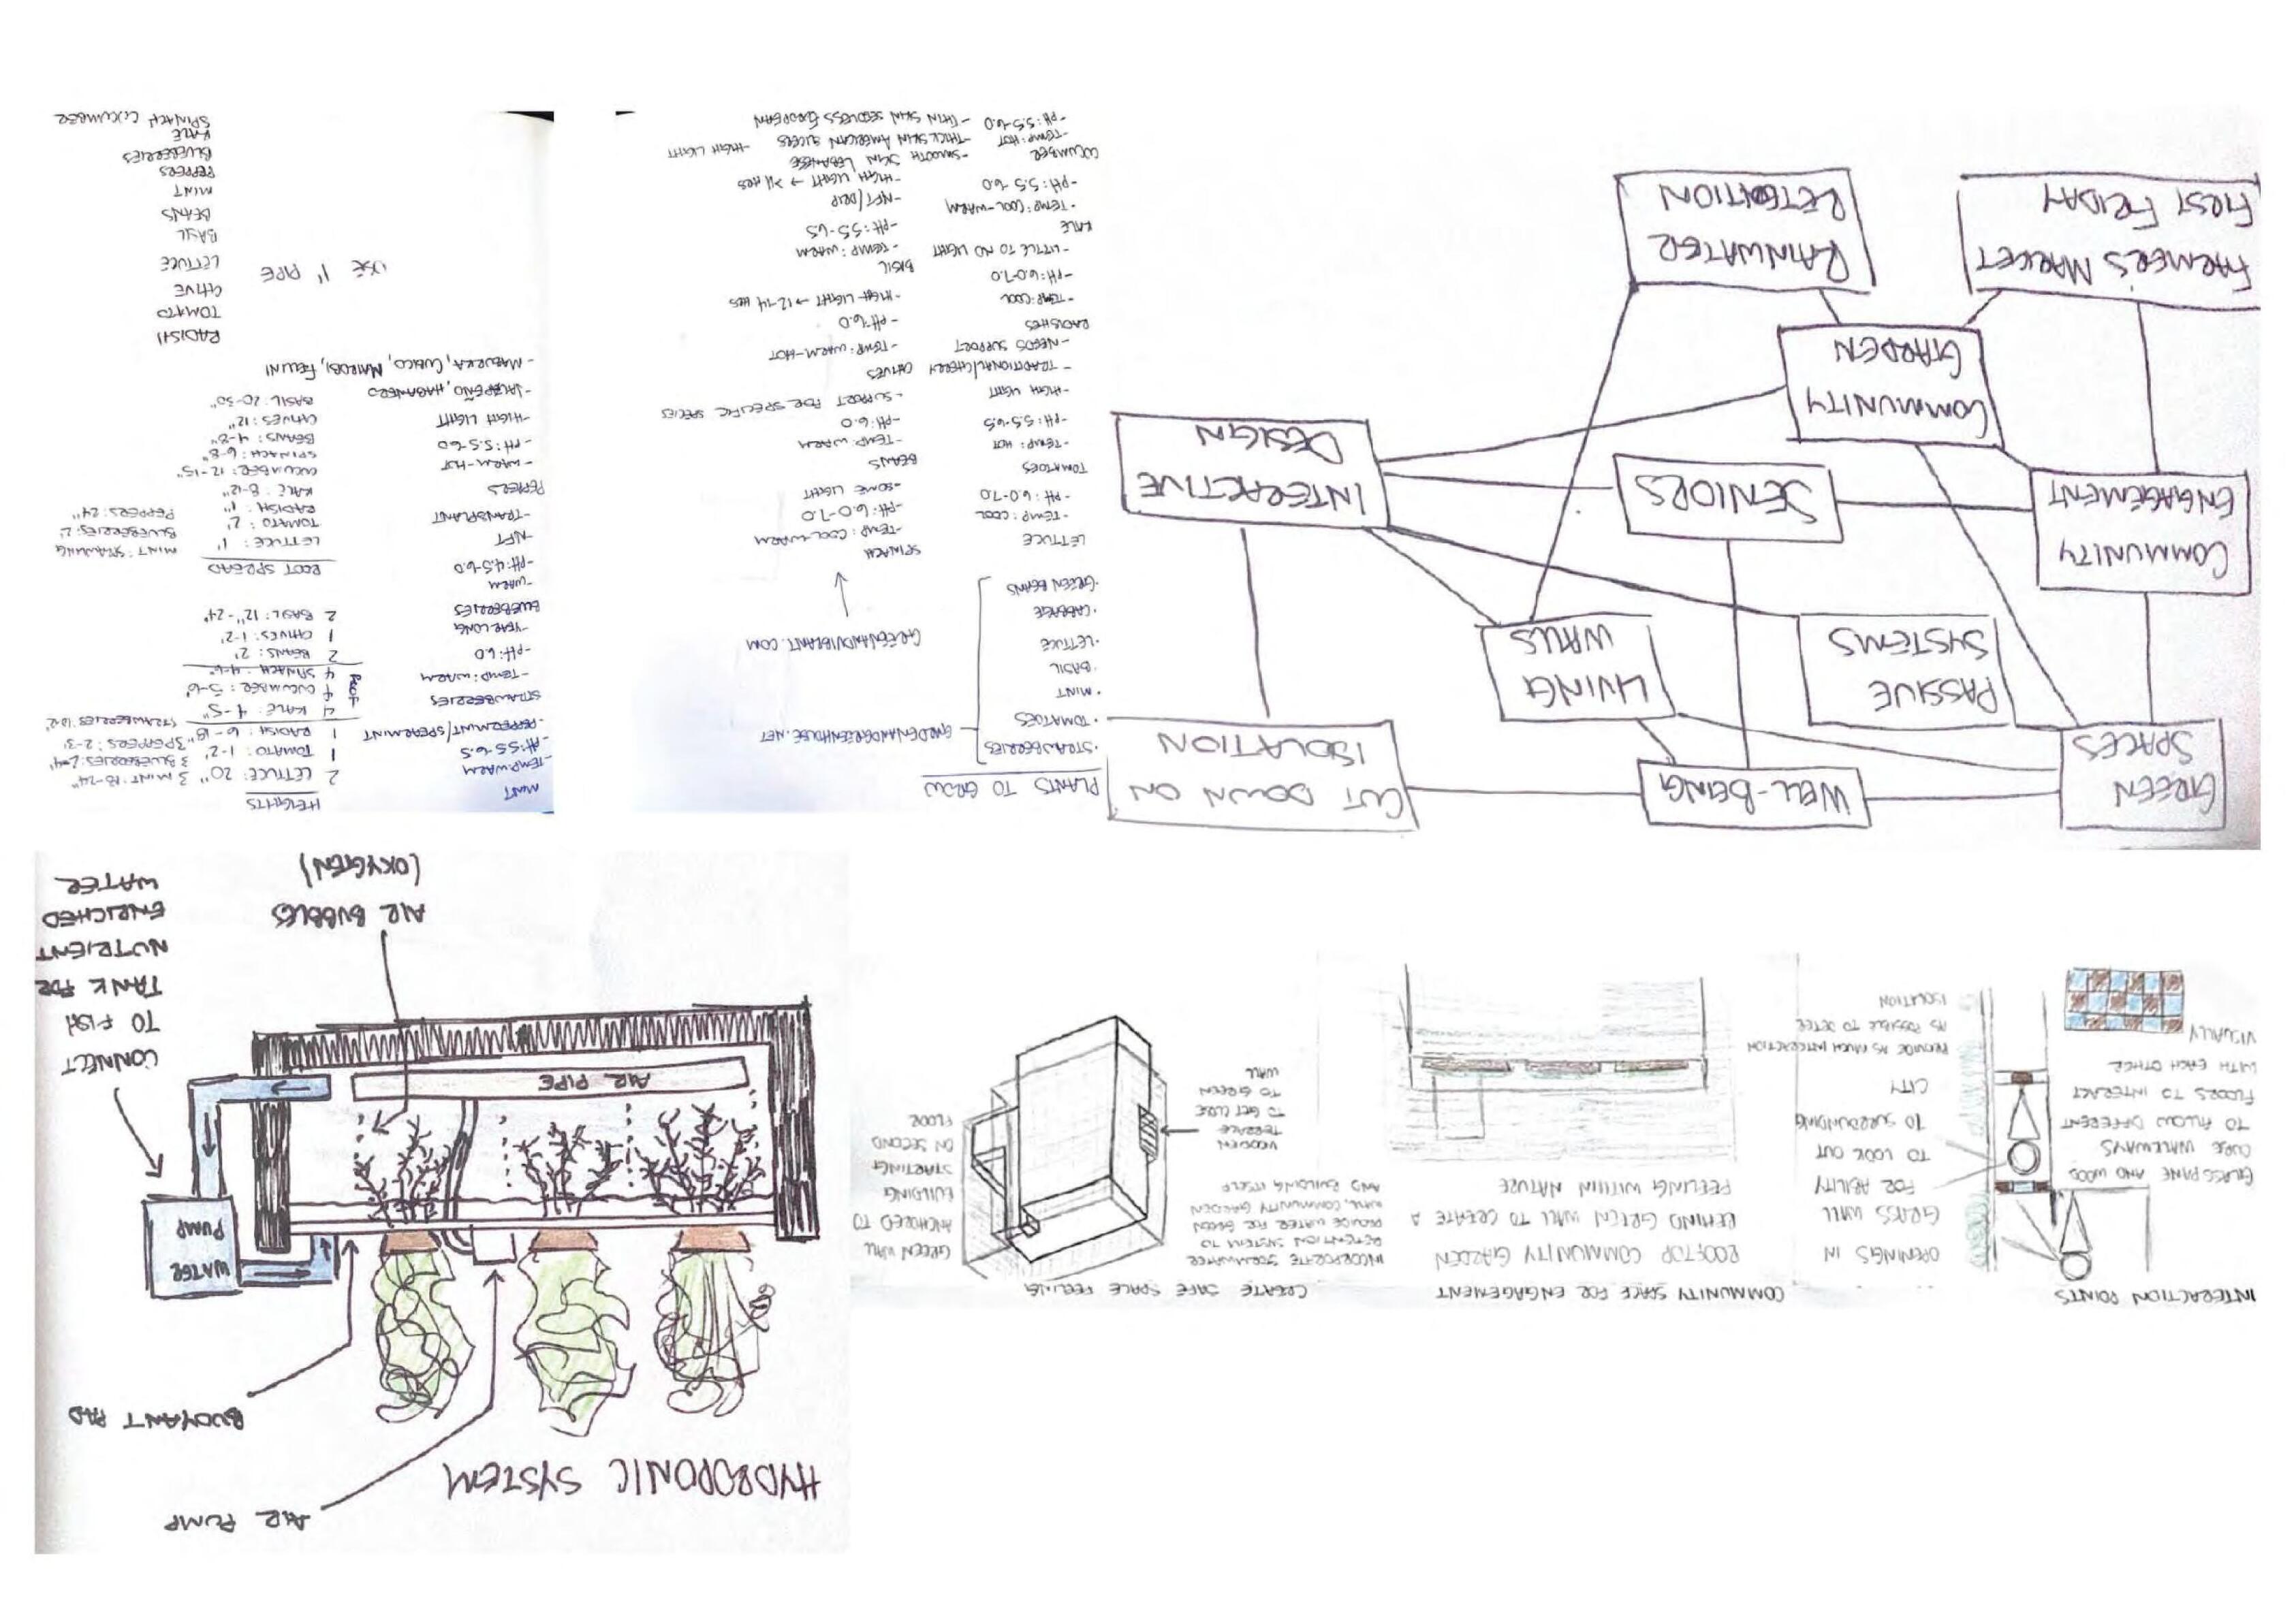 INTERACTION POINTS
GLASS PANE AND WOOD
CORE WALKWAYS
TO ALLOW DIFFERENT
FLOORS TO INTERACT
WITH EACH OTHER
VISUALLY
OPENINGS IN
GRASS WALL
FOR ABILITY
TO LOOK OUT
TO SURROUNDING
CITY
PROVIDE AS MUCH INTERACTION
AS POSSIBLE TO DETER
ISOLATION
COMMUNITY SPACE FOR ENGAGEMENT
ROOFTOP COMMUNITY GARDEN
BEHIND GREEN WALL TO CREATE A
FEELING WITHIN NATURE
CREATE SAFE SPACE FEELING
INCORPORATE STORMWATER
RETENTION SYSTEM TO
PROVIDE WATER FOR GREEN
WALL, COMMUNITY GARDEN
AND BUILDING ITSELF
WOODEN
TERRACE
TO GET CLOSE
TO GREEN
WALL
GREEN WALL
ANCHORED TO
BUILDING
STARTING
ON SECOND
FLOOR
HYDROPONIC SYSTEM
AIR PUMP
BUOYANT PAD
WATER
PUMP
AIR PIPE
CONNECT
TO FISH
TANK FOR
NUTRIENT
ENRICHED
WATER
AIR BUBBLES
(OXYGEN)
GREEN
SPACES
WELL-BEING
CUT DOWN ON
ISOLATION
PASSIVE
SYSTEMS
LIVING
WALLS
COMMUNITY
ENGAGEMENT
SENIORS
INTERACTIVE
DESIGN
COMMUNITY
GARDEN
FARMERS MARKET
FIRST FRIDAY
RAINWATER
RETENTION
PLANTS TO GROW
·STRAWBERRIES
·TOMATOES
·MINT
·BASIL
·LETTUCE
·CABBAGE
·GREEN BEANS
GARDENANDGREENHOUSE.NET
GREENANDVIBRANT.COM
LETTUCE
-TEMP: COOL
-PH: 6.0-7.0
TOMATOES
-TEMP: HOT
-PH: 5.5-6.5
-HIGH LIGHT
-TRADITIONAL/CHERRY
-NEEDS SUPPORT
RADISHES
-TEMP: COOL
-PH: 6.0-7.0
-LITTLE TO NO LIGHT
KALE
·TEMP: COOL-WARM
-PH: 5.5-6.0
CUCUMBER
-TEMP: HOT
-PH: 5.5-6.0
-SMOOTH SKIN LEBANESE
-THICK SKIN AMERICAN SLICERS
-THIN SKIN SEEDLESS EUROPEAN
-HIGH LIGHT
SPINACH
-TEMP: COOL-WARM
-PH: 6.0-7.0
-SOME LIGHT
BEANS
-TEMP: WARM
-PH: 6.0
-SUPPORT FOR SPECIFIC SPECIES
CHIVES
-TEMP: WARM-HOT
-PH: 6.0
-HIGH LIGHT → 12-14 HRS
BASIL
-TEMP: WARM
-PH: 5.5-6.5
-NFT/DRIP
-HIGH LIGHT → >11 HRS
MINT
-TEMP: WARM
-PH: 5.5-6.5
-PEPPERMINT/SPEARMINT
STRAWBERRIES
-TEMP: WARM
-PH: 6.0
-YEAR LONG
BLUEBERRIES
-WARM
-PH: 4.5-6.0
-NFT
-TRANSPLANT
PEPPERS
-WARM-HOT
-PH: 5.5-6.0
-HIGH LIGHT
-JALAPEÑO, HABANERO
-MAZURKA, CUBICO, NAIROBI, FELLINI
HEIGHTS
2 LETTUCE: 20"
1 TOMATO: 1-2'
1 RADISH: 6-18"
4 KALE: 4-5"
4 CUCUMBER: 5-6'
4 SPINACH: 4-6"
2 BEANS: 2'
1 CHIVES: 1-2'
2 BASIL: 12"-24"
3 MINT: 18-24"
3 BLUEBERRIES: 2-4'
3 PEPPERS: 2-3'
ROOT SPREAD
LETTUCE: 1'
TOMATO: 2'
RADISH: 1"
KALE: 8-12"
CUCUMBER: 12-15"
SPINACH: 6-8"
BEANS: 4-8"
CHIVES: 12"
BASIL: 20-30"
MINT: SPANNING
BLUEBERRIES: 2'
PEPPERS: 24"
USE 1" PIPE
RADISH
TOMATO
CHIVE
LETTUCE
BASIL
BEANS
MINT
PEPPERS
BLUEBERRIES
KALE
SPINACH CUCUMBER